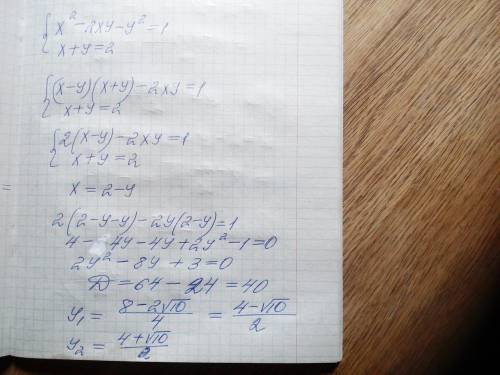 { x² - 2xy - y² = 1
x + y = 2
{ (x-y)(x+y) - 2xy = 1
x + y = 2
{ 2(x-y) - 2xy = 1
x + y = 2
=
x = 2 - y
2(2-y-y) - 2y(2-y) = 1
4 - 4y - 4y + 2y² - 1 = 0
2y² - 8y + 3 = 0
D = 64 - 24 = 40
y₁ = (8 - 2√10)/4 = (4 - √10)/2
y₂ = (4 + √10)/2